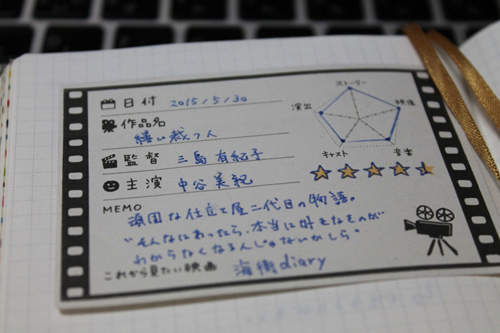 日付 2015/5/30
作品名
繕い裁つ人
監督 三島有紀子
主演 中谷美紀
ストーリー
演出
映像
キャスト
音楽
MEMO
頑固な仕立て屋二代目の物語。
"そんなにあったら、本当に好きなものが
わからなくなるんじゃないかしら"
これから見たい映画 海街diary